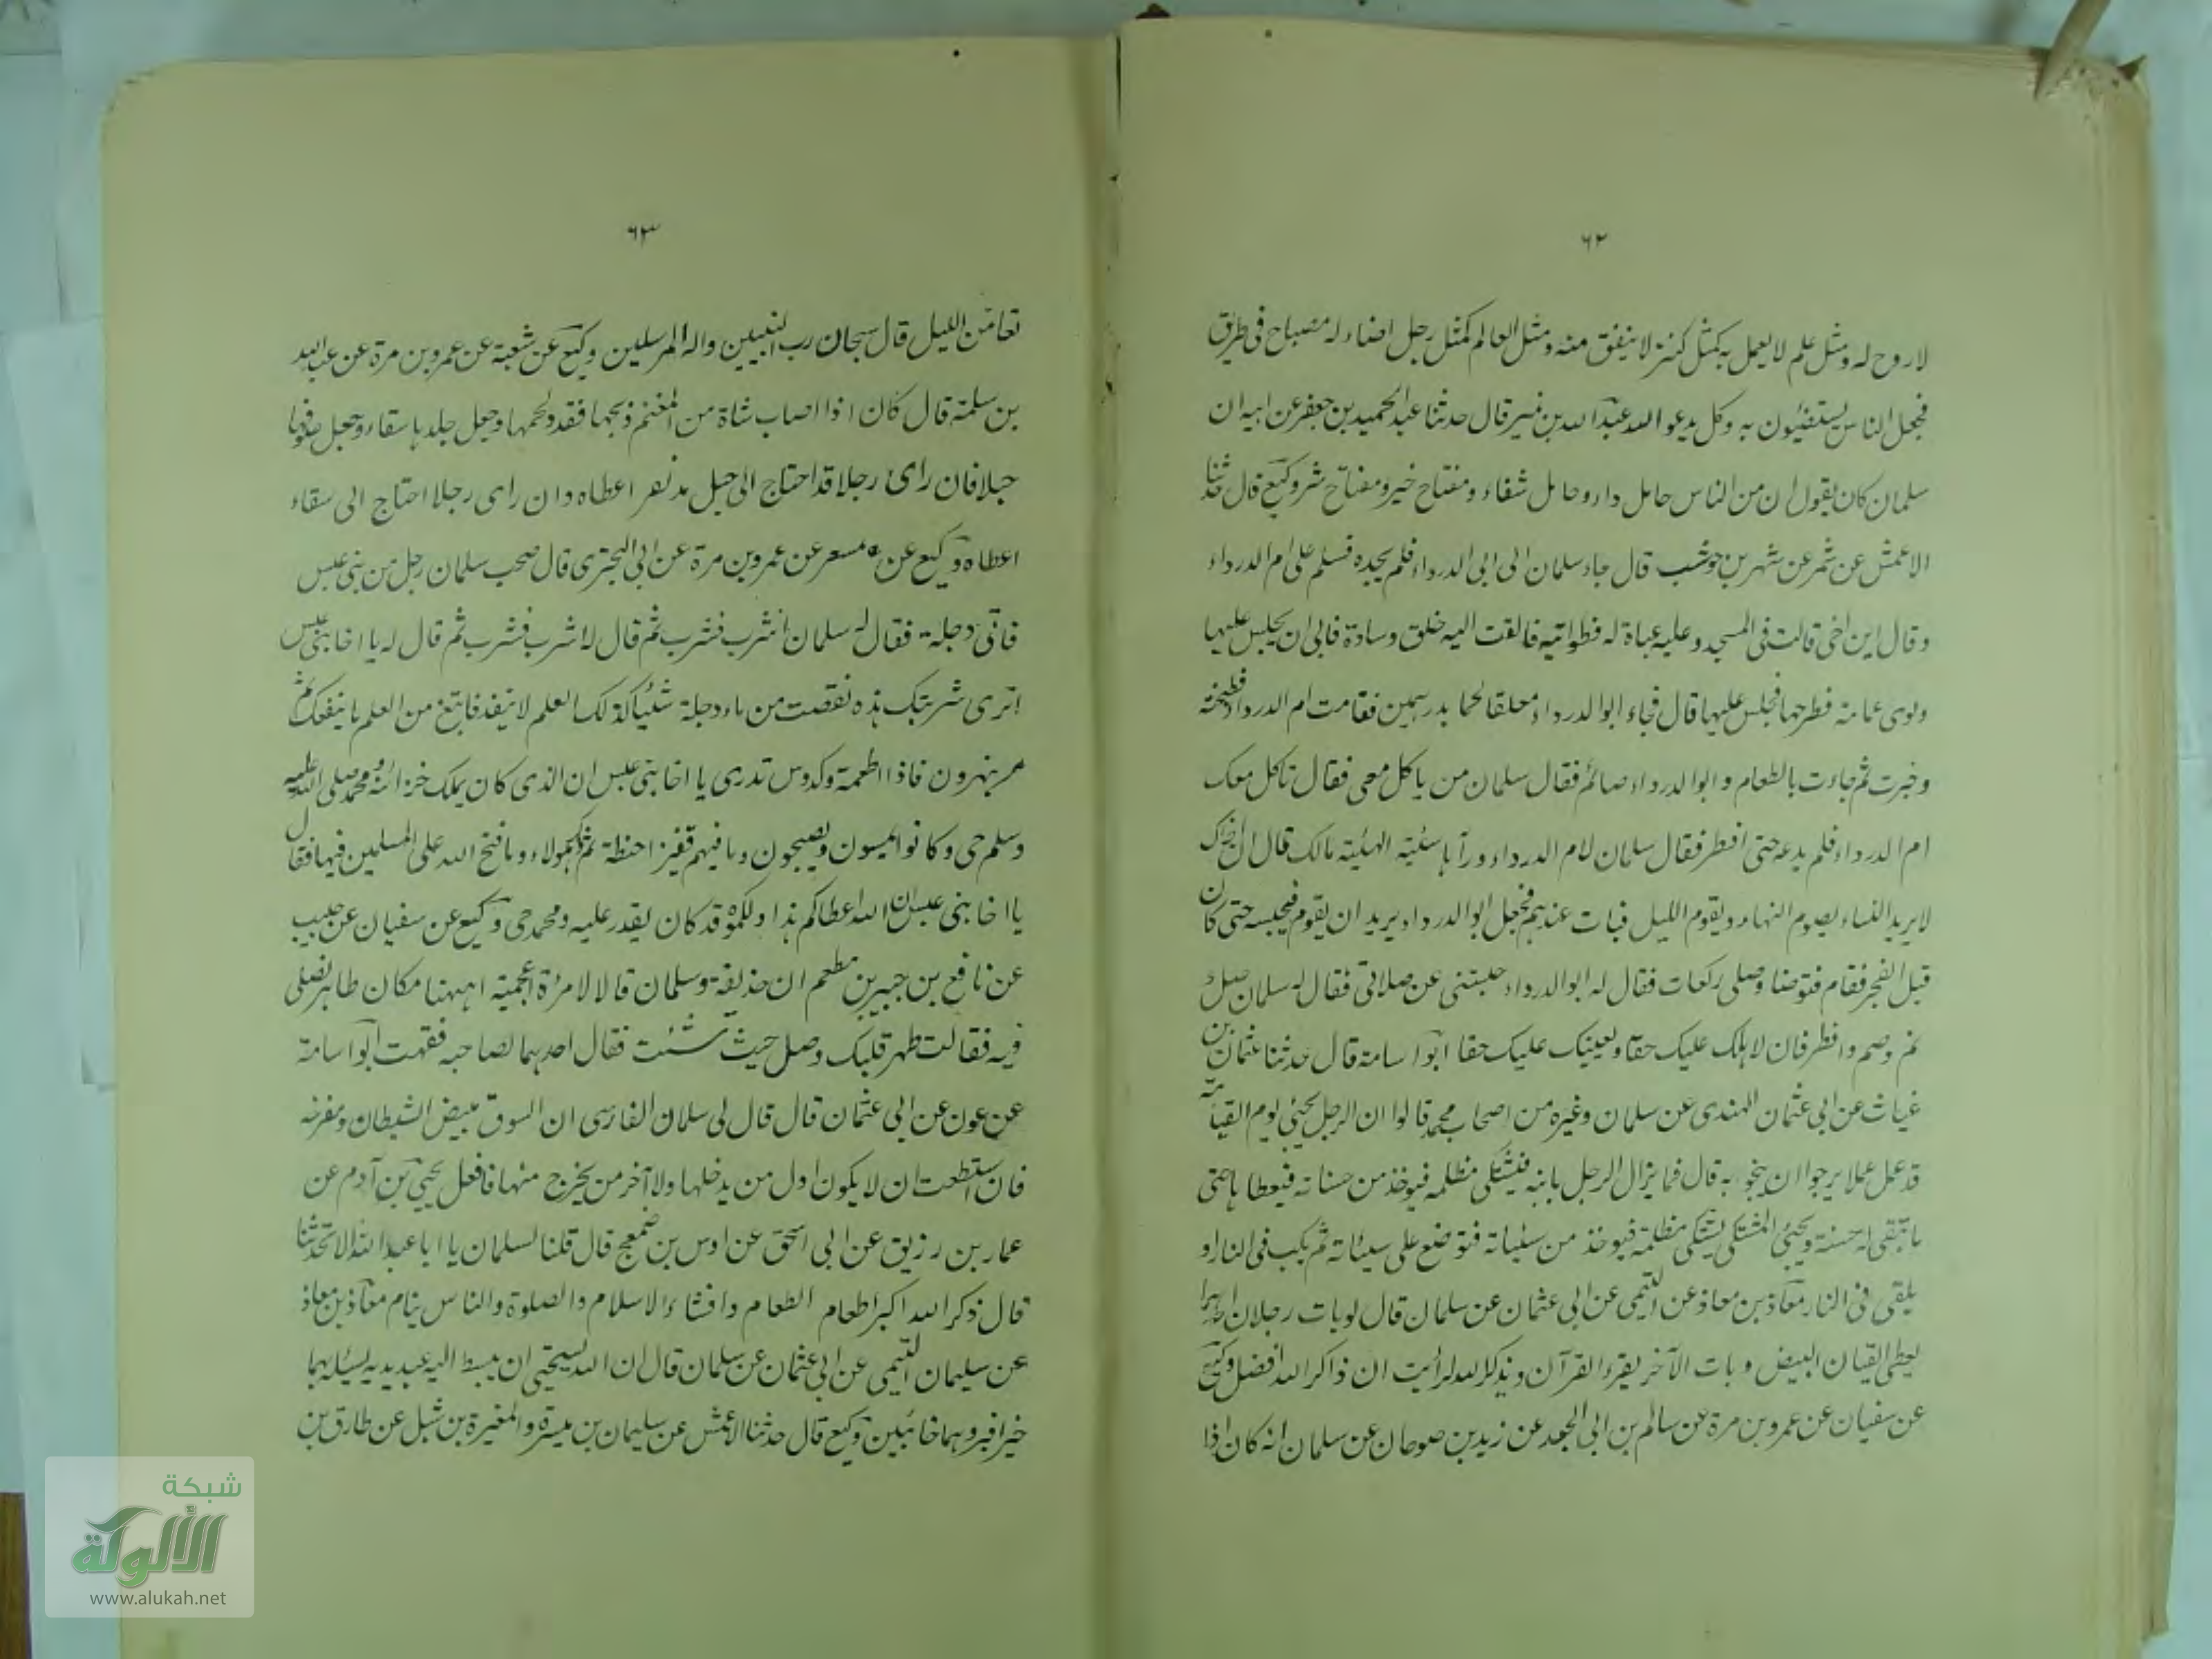 ٦٢
لا روح له ومثل علم لا يعمل به كمثل كنز لا ينفق منه ومثل العالم كمثل رجل اضاء له مصباح فى طريق
فجعل الناس يستضيئون به وكل يدعو الله عبد الله بن نمير قال حدثنا عبد الحميد بن جعفر عن ابيه ان
سلمان كان يقول ان من الناس حامل داء وحامل شفاء ومفتاح خير ومفتاح شر وكيع قال حدثنا
الاعمش عن شمر عن شهر بن حوشب قال جاء سلمان الى ابى الدرداء فلم يجده فسلم على ام الدرداء
وقال اين اخى قالت فى المسجد وعليه عباة له قطوانية فالقت اليه خلق وسادة فابى ان يجلس عليها
ولوى عمامته فطرحها فجلس عليها قال فجاء ابو الدرداء معلقا لحما بدرهمين فقامت ام الدرداء فطبخته
وخبزت ثم جاءت بالطعام و ابو الدرداء صائم فقال سلمان من ياكل معى فقال تاكل معك
ام الدرداء فلم يدعه حتى افطر فقال سلمان لام الدرداء ورآها سيئة الهيئة مالك قال ان اخاك
لا يريد النساء يصوم النهار ويقوم الليل فبات عندهم فجعل ابو الدرداء يريد ان يقوم فيحبسه حتى كان
قبل الفجر فقام فتوضا وصلى ركعات فقال له ابو الدرداء حبستنى عن صلاتى فقال له سلمان صل
نم وصم وافطر فان لاهلك عليك حقا ولعينيك عليك حقا ابو اسامة قال حدثنا عثمان بن
غياث عن ابى عثمان الهندى عن سلمان وغيره من اصحاب محمد قالوا ان الرجل يجئ يوم القيامة
قد عمل عملا يرجو ان ينجو به قال فما يزال الرجل ياتيه فيشتكى مظلمه فيوخذ من حسناته فيعطاها حتى
ما تبقى له حسنة ويجئ المشتكى يشتكى مظلمة فيوخذ من سيئاته فتوضع على سيئاته ثم يكب فى النار او
يلقى فى النار معاذ بن معاذ عن التيمى عن ابى عثمان عن سلمان قال لو بات رجلان احدهما
يعطى القيان البيض و بات الآخر يقرء القرآن ويذكر الله لرأيت ان ذاكر الله افضل وكيع
عن سفيان عن عمرو بن مرة عن سالم بن ابى الجعد عن زيد بن صوحان عن سلمان انه كان اذا
٦٣
تعار من الليل قال سبحان رب النبيين واله المرسلين وكيع عن شعبة عن عمرو بن مرة عن عبد الله
بن سلمة قال كان اذا اصاب شاة من المغنم ذبحها فقدد لحمها وجعل جلدها سقاء وجعل صوفها
حبلا فان راى رجلا قد احتاج الى حبل اعطاه وان راى رجلا احتاج الى سقاء
اعطاه وكيع عن مسعر عن عمرو بن مرة عن ابى البخترى قال صحب سلمان رجل من بنى عبس
فاتى دجلة فقال له سلمان اشرب فشرب ثم قال لا شرب فشرب ثم قال له يا اخا بنى عبس
اترى شربتك هذه نقصت من ماء دجلة شيئا كذلك العلم لا ينفد فابتغ من العلم ما ينفعك ثم
مر بنهر دن فاذا اطعمة وكدوس تدرى يا اخا بنى عبس ان الذى كان يملك خزائنه ومحمد صلى الله عليه
وسلم حى وكانوا يمسون ويصبحون وما فيهم قفيز حنطة ثم ذكر جلولاء وما فتح الله على المسلمين فيها فقال
يا اخا بنى عبس ان الله اعطاكم هذا وقد كان يقدر عليه ومحمد حى وكيع عن سفيان عن حبيب
عن نافع بن جبير بن مطعم ان حذيفة وسلمان قالا لامرءة اعجمية اههنا مكان طاهر نصلى
فيه فقالت طهر قلبك وصل حيث شئت فقال احدهما لصاحبه فقهت ابو اسامة
عن عون عن ابى عثمان قال قال لى سلمان الفارسى ان السوق مبيض الشيطان ومفرخه
فان استطعت ان لا يكون اول من يدخلها ولا آخر من يخرج منها فافعل يحيى بن آدم عن
عمار بن رزيق عن ابى اسحق عن اوس بن ضمعج قال قلنا لسلمان يا ابا عبد الله الا تحدثنا
قال ذكر الله اكبر اطعام الطعام وافشاء الاسلام والصلوة والناس ينام معاذ بن معاذ
عن سليمان التيمى عن ابى عثمان عن سلمان قال ان الله ليستحيى ان يبسط اليه عبد يديه يسئله بهما
خيرا فيردهما خائبين وكيع قال حدثنا الاعمش عن سليمان بن ميسرة والمغيرة بن شبل عن طارق بن
شبكة
الألوكة
www.alukah.net